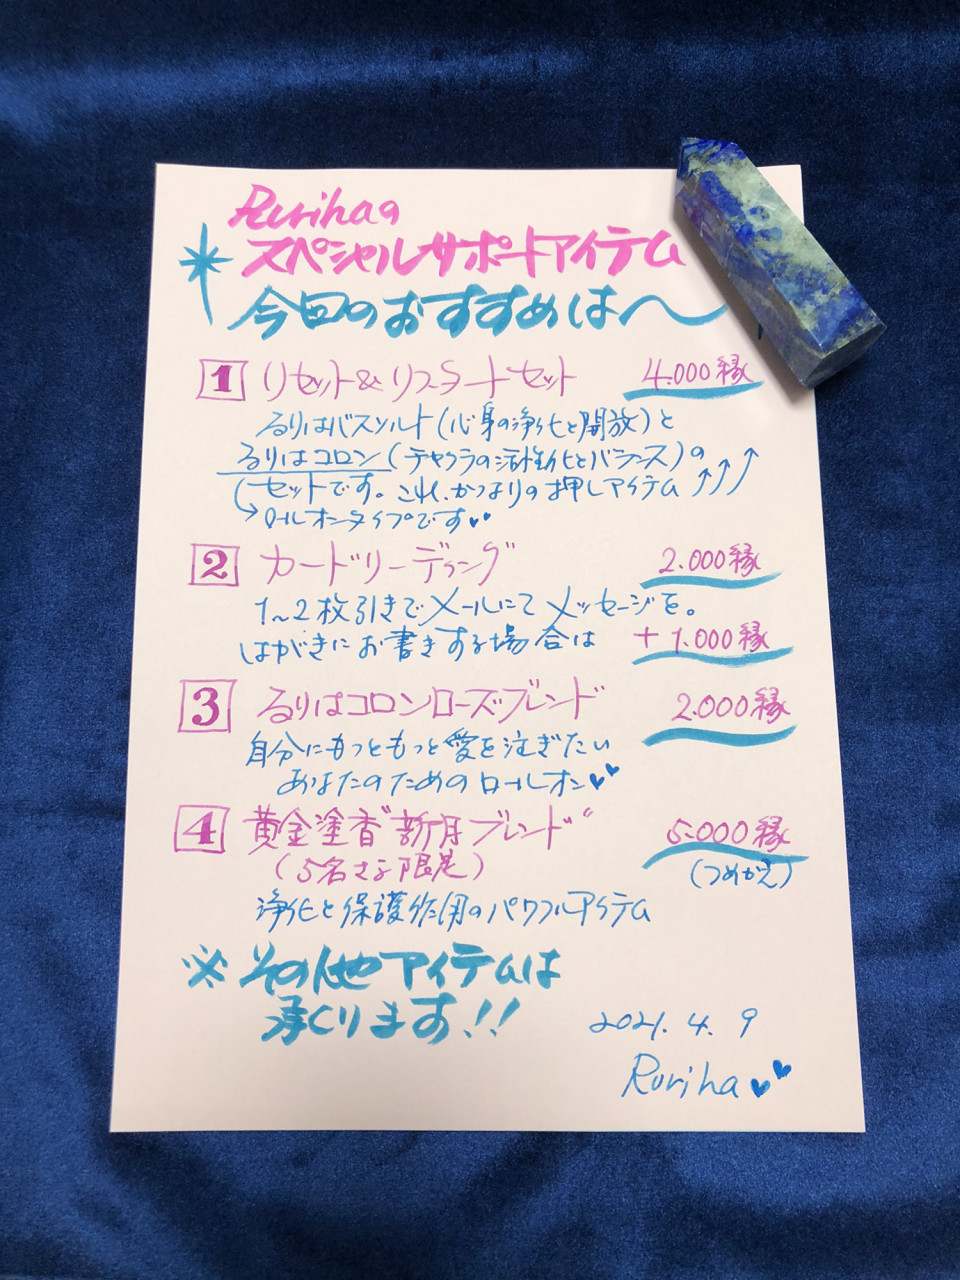 Rurihaの
スペシャルサポートアイテム
今回のおすすめは〜
1 リセット&リスタートセット 4.000縁
るりはバスソルト(心身の浄化と開放)と
るりはコロン(チャクラの活性化とバランス)の
セットです。これ、かつよりの押しアイテム ↑↑↑
→ロールオンタイプです♥♥
2 カードリーディング 2.000縁
1〜2枚引きでメールにてメッセージを。
はがきにお書きする場合は +1.000縁
3 るりはコロンローズブレンド 2.000縁
自分にもっともっと愛を注ぎたい
あなたのためのロールオン♥♥
4 黄金塗香"新月ブレンド" 5.000縁
(5名さま限定) (つめかえ)
浄化と保護作用のパワフルアイテム
※その他アイテムは
承ります!!
2021.4.9
Ruriha♥♥